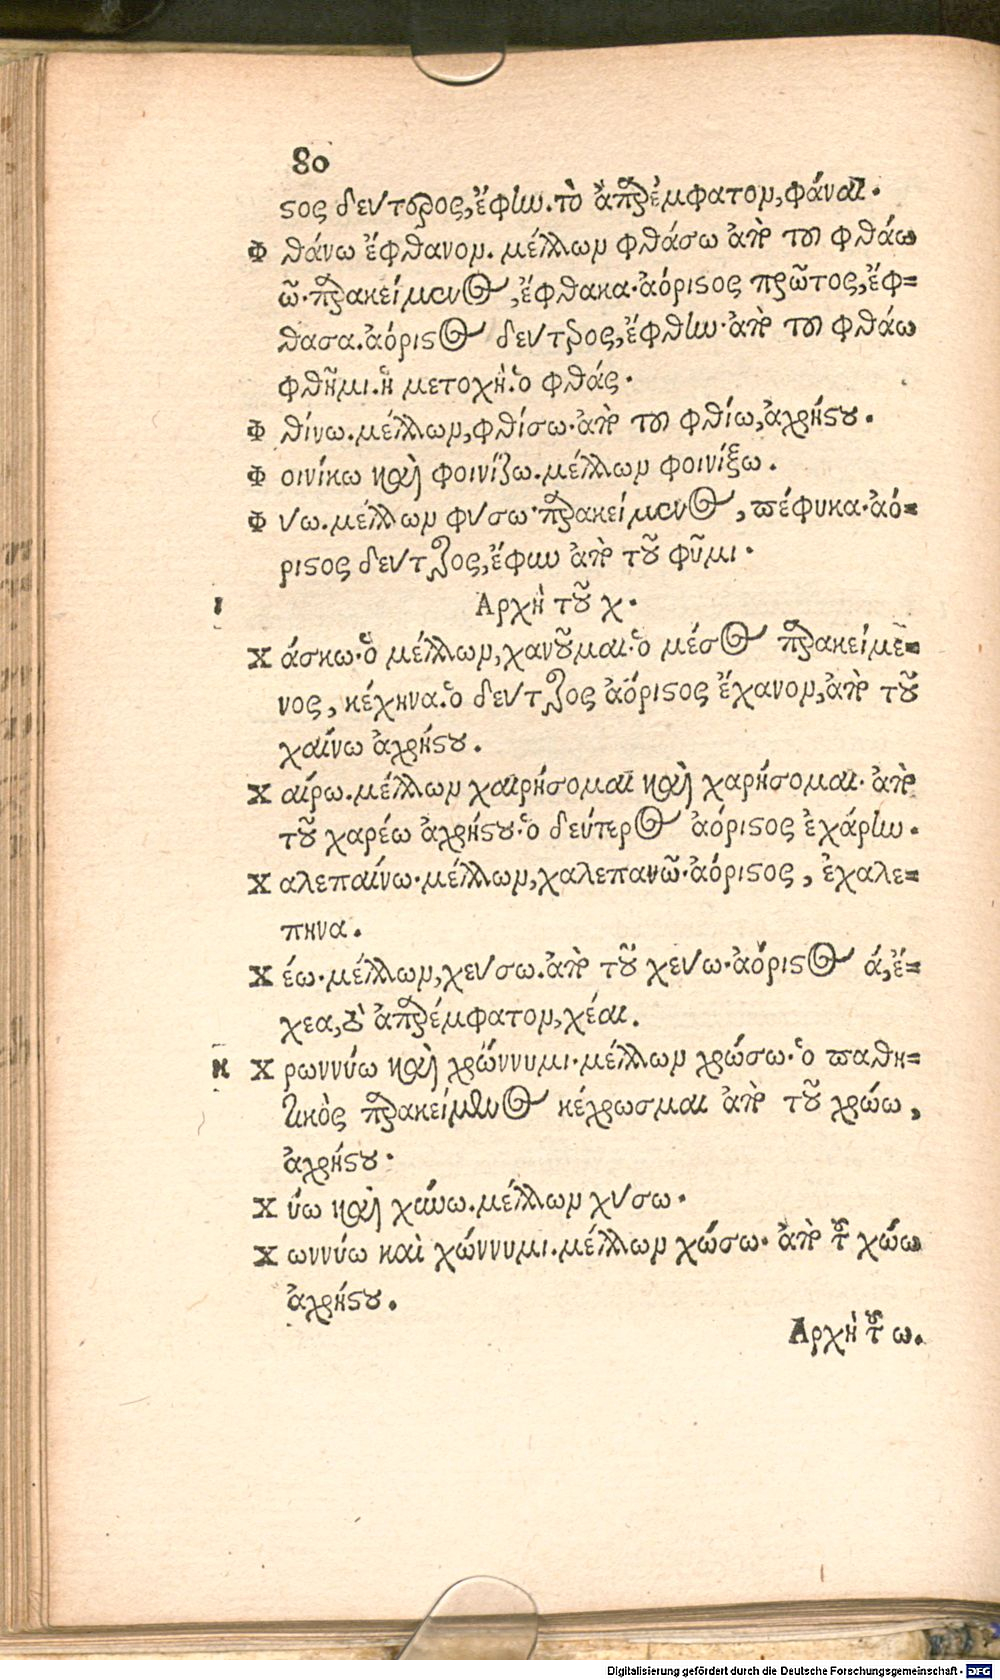 80
ϛος δευτερος, ἔφην. τὸ ἀπαρέμφατομ, φάναι.
Φθάνω ἔφθανομ. μέλλωμ φθάσω ἀπὸ του φθάω
ῶ. παρακείμενος, ἔφθακα. ἀόριϛος πρῶτος, ἔφ=
θασα. ἀόριϛος δευτερος, ἔφθην. ἀπὸ του φθάω
φθῆμι. ἡ μετοχὴ. ὁ φθάς.
Φθίνω. μέλλωμ, φθίσω. ἀπὸ του φθίω, ἀχρήϛου.
Φοινίκω καὶ φοινίζω. μέλλωμ φοινίξω.
Φυω. μέλλωμ φυσω. παρακείμενος, πέφυκα. ἀό=
ριϛος δευτερος, ἔφυν ἀπὸ τοῦ φῦμι.
Αρχὴ τοῦ χ.
Χάσκω. ὁ μέλλωμ, χανοῦμαι. ὁ μέσος παρακείμε=
νος, κέχηνα. ὁ δευτερος ἀόριϛος ἔχανομ, ἀπὸ τοῦ
χαίνω ἀχρήϛου.
Χαίρω. μέλλωμ χαιρήσομαι καὶ χαρήσομαι. ἀπὸ
τοῦ χαρέω ἀχρήϛου. ὁ δεύτερος ἀόριϛος ἐχάρην.
Χαλεπαίνω. μέλλωμ, χαλεπανῶ. ἀόριϛος, ἐχαλε=
πηνα.
Χέω. μέλλωμ, χευσω. ἀπὸ τοῦ χευω. ἀόριϛος ά, ἔ=
χεα, ἀπαρέμφατομ, χέαι.
Χρωννύω καὶ χρώννυμι. μέλλωμ χρώσω. ὁ παθη=
τικὸς παρακείμενος κέχρωσμαι ἀπὸ τοῦ χρώω,
ἀχρήϛου.
Χύω καὶ χώυω. μέλλωμ χυσω.
Χωννύω καὶ χώννυμι. μέλλωμ χώσω. ἀπὸ τοῦ χώω
ἀχρήϛου.
Αρχὴ τοῦ ω.
Digitalisierung gefördert durch die Deutsche Forschungsgemeinschaft - DFG